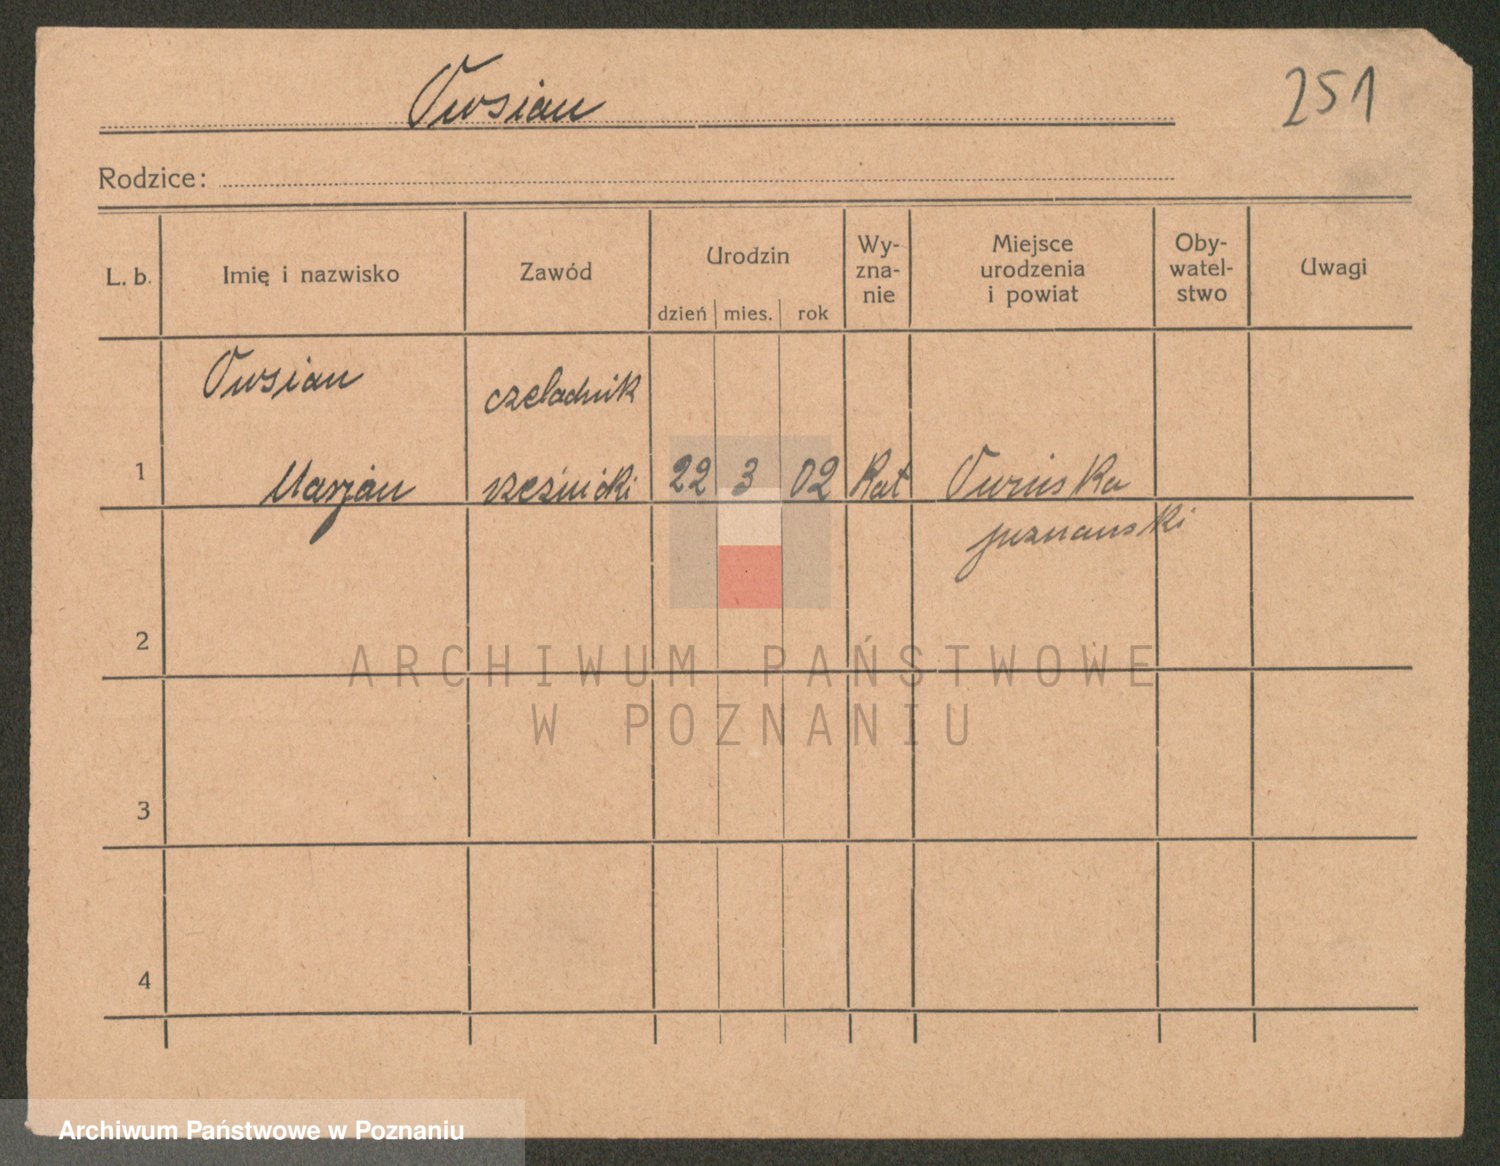 Owsian
251
Rodzice:
L. b.
Imię i nazwisko
Zawód
Urodzin
dzień mies. rok
Wy-
zna-
nie
Miejsce
urodzenia
i powiat
Oby-
watel-
stwo
Uwagi
Owsian czeladnik
1 Marjan rzeźnicki 22 3 02 Kat
poznański
2
3
4
ARCHIWUM PAŃSTWOWE
W POZNANIU
Archiwum Państwowe w Poznaniu